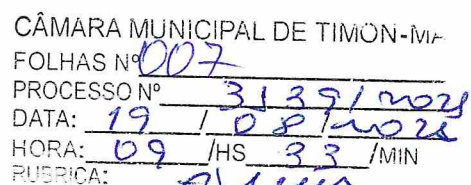 CÂMARA MUNICIPAL DE TIMON-MA
FOLHAS Nº 007
PROCESSO Nº 3139/
DATA: 19 / 08 /
HORA: 09 /HS 33 /MIN
RUBRICA: